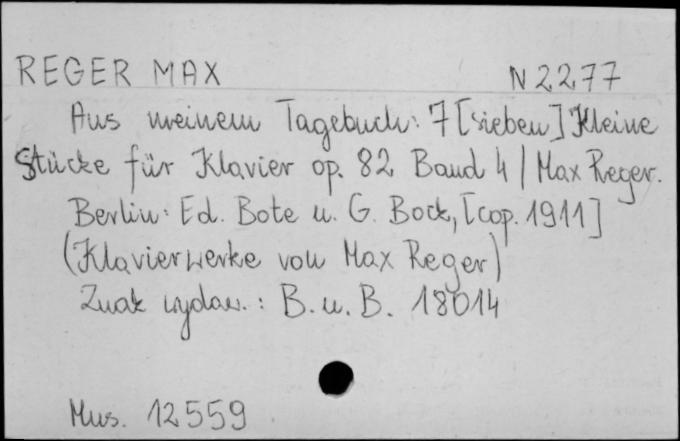 REGER MAX N 2277
Aus meinem Tagebuch: 7 [sieben] Kleine
Stücke für Klavier op. 82 Band 4 / Max Reger.
Berlin: Ed. Bote u. G. Bock, [cop. 1911]
(Klavierwerke von Max Reger)
Znak wydaw.: B. u. B. 18014
Mus. 12559